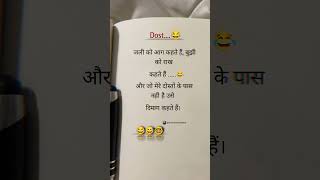 Dost....😂
जली को आग कहते हैं, बुझी
को राख
कहते हैं ..... 😂
और जो मेरे दोस्तो के पास
नही है उसे
दिमाग कहते हैं।